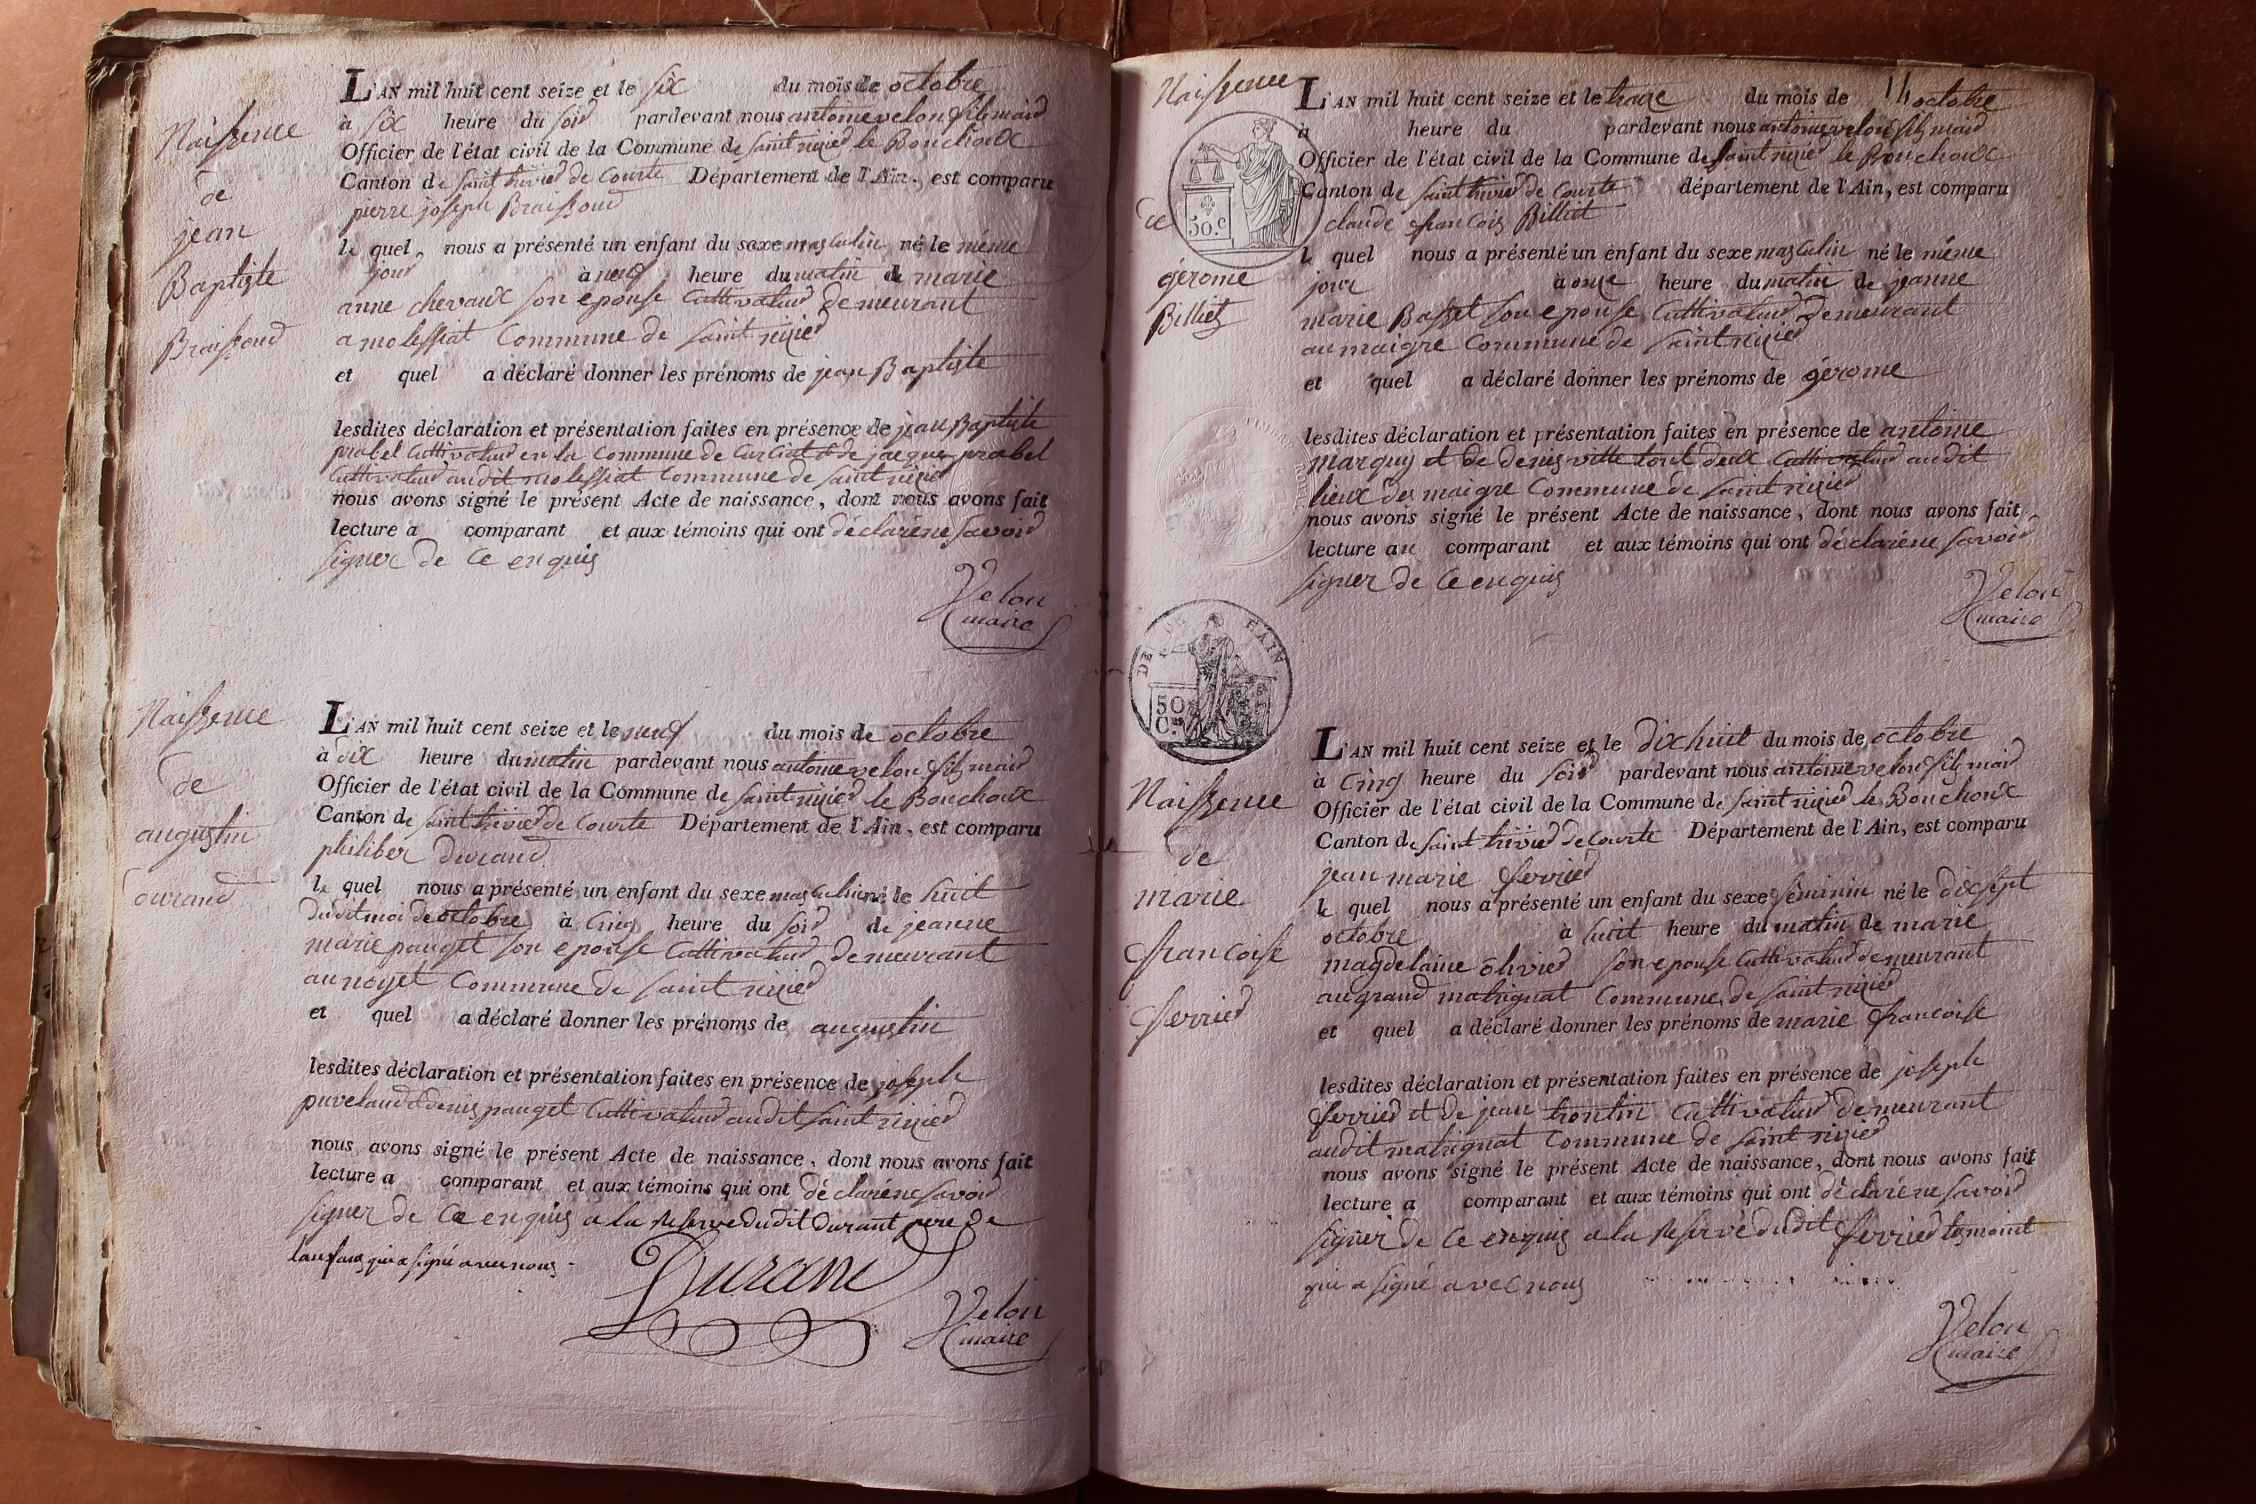 Naissence
de
jean
Baptiste
Braissoud
L'AN mil huit cent seize et le six du mois de octobre
à six heure du soir pardevant nous antoine velon fils maire
Officier de l'état civil de la Commune de saint nizier le Bouchoux
Canton de saint trivier de Courte Département de l'Ain, est comparu
pierre joseph Braissoud
le quel, nous a présenté un enfant du sexe masculin né le même
jour à neuf heure du matin de marie
anne chevaux son epouse Cultivateur demeurant
a molessiat Commune de saint nizier
et quel a déclaré donner les prénoms de jean Baptiste
lesdites déclaration et présentation faites en présence de jean Baptiste
prabel Cultivateur en la Commune de Curciat et de jacque prabel
Cultivateur audit molessiat Commune de saint nizier
nous avons signé le présent Acte de naissance, dont nous avons fait
lecture a comparant et aux témoins qui ont déclaré ne savoir
signer de ce enquis
Velon
maire
Naissence
de
augustin
durand
L'AN mil huit cent seize et le neuf du mois de octobre
à dix heure du matin pardevant nous antoine velon fils maire
Officier de l'état civil de la Commune de saint nizier le Bouchoux
Canton de saint trivier de Courte Département de l'Ain, est comparu
philiber durand
le quel nous a présenté un enfant du sexe masculin né le huit
dudit moi de octobre à Cinq heure du soir de jeanne
marie pauget son epouse Cultivateur demeurant
au noyet Commune de saint nizier
et quel a déclaré donner les prénoms de augustin
lesdites déclaration et présentation faites en présence de joseph
puvelaud denis pauget Cultivateur audit saint nizier
nous avons signé le présent Acte de naissance, dont nous avons fait
lecture a comparant et aux témoins qui ont déclaré ne savoir
signer de Ce enquis a la reserve dudit durant pere de
lanfans qui a signé avec nous
Durand
Velon
maire
Naissence
de
gérome
Billiet
50.c
L'AN mil huit cent seize et le treze du mois de octobre
à heure du pardevant nous antoine velon fils maire
Officier de l'état civil de la Commune de saint nizier le Bouchoux
Canton de saint trivier de Courte département de l'Ain, est comparu
claude francois Billiet
le quel nous a présenté un enfant du sexe masculin né le même
jour à onze heure du matin de jeanne
marie Basset son epouse Cultivateur demeurant
au maigre Commune de saint nizier
et quel a déclaré donner les prénoms de gérome
lesdites déclaration et présentation faites en présence de antoine
marquis et de denis ville tout deux Cultivateur audit
lieux des maigre Commune de saint nizier
nous avons signé le présent Acte de naissance, dont nous avons fait
lecture au comparant et aux témoins qui ont déclaré ne savoir
signer de Ce enquis
Velon
maire
50
Cs
Naissence
de
marie
francoise
ferrier
L'AN mil huit cent seize et le dix huit du mois de octobre
à Cinq heure du soir pardevant nous antoine velon fils maire
Officier de l'état civil de la Commune de saint nizier le Bouchoux
Canton de saint trivier de Courte Département de l'Ain, est comparu
jean marie ferrier
le quel nous a présenté un enfant du sexe féminin né le dix sept
octobre à huit heure du matin de marie
magdelaine olivier son epouse Cultivateur demeurant
au grand matrignat Commune de saint nizier
et quel a déclaré donner les prénoms de marie francoise
lesdites déclaration et présentation faites en présence de joseph
ferrier et de jean trontin Cultivateur demeurant
audit matrignat Commune de saint nizier
nous avons signé le présent Acte de naissance, dont nous avons fait
lecture a comparant et aux témoins qui ont déclaré ne savoir
signer de Ce enquis a la reserve dudit ferrier temoint
qui a signé avec nous
Velon
maire